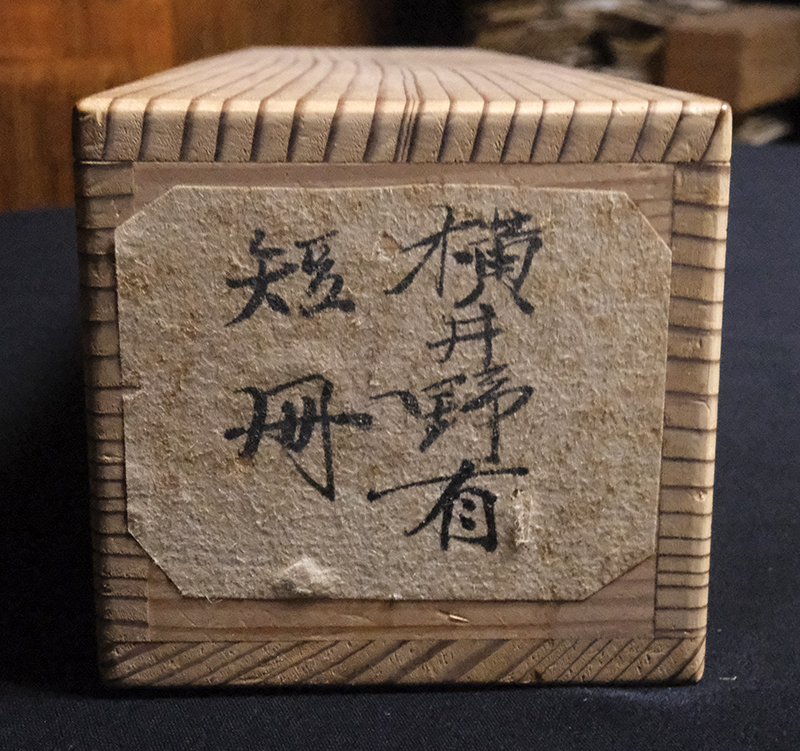 横井野有
短冊